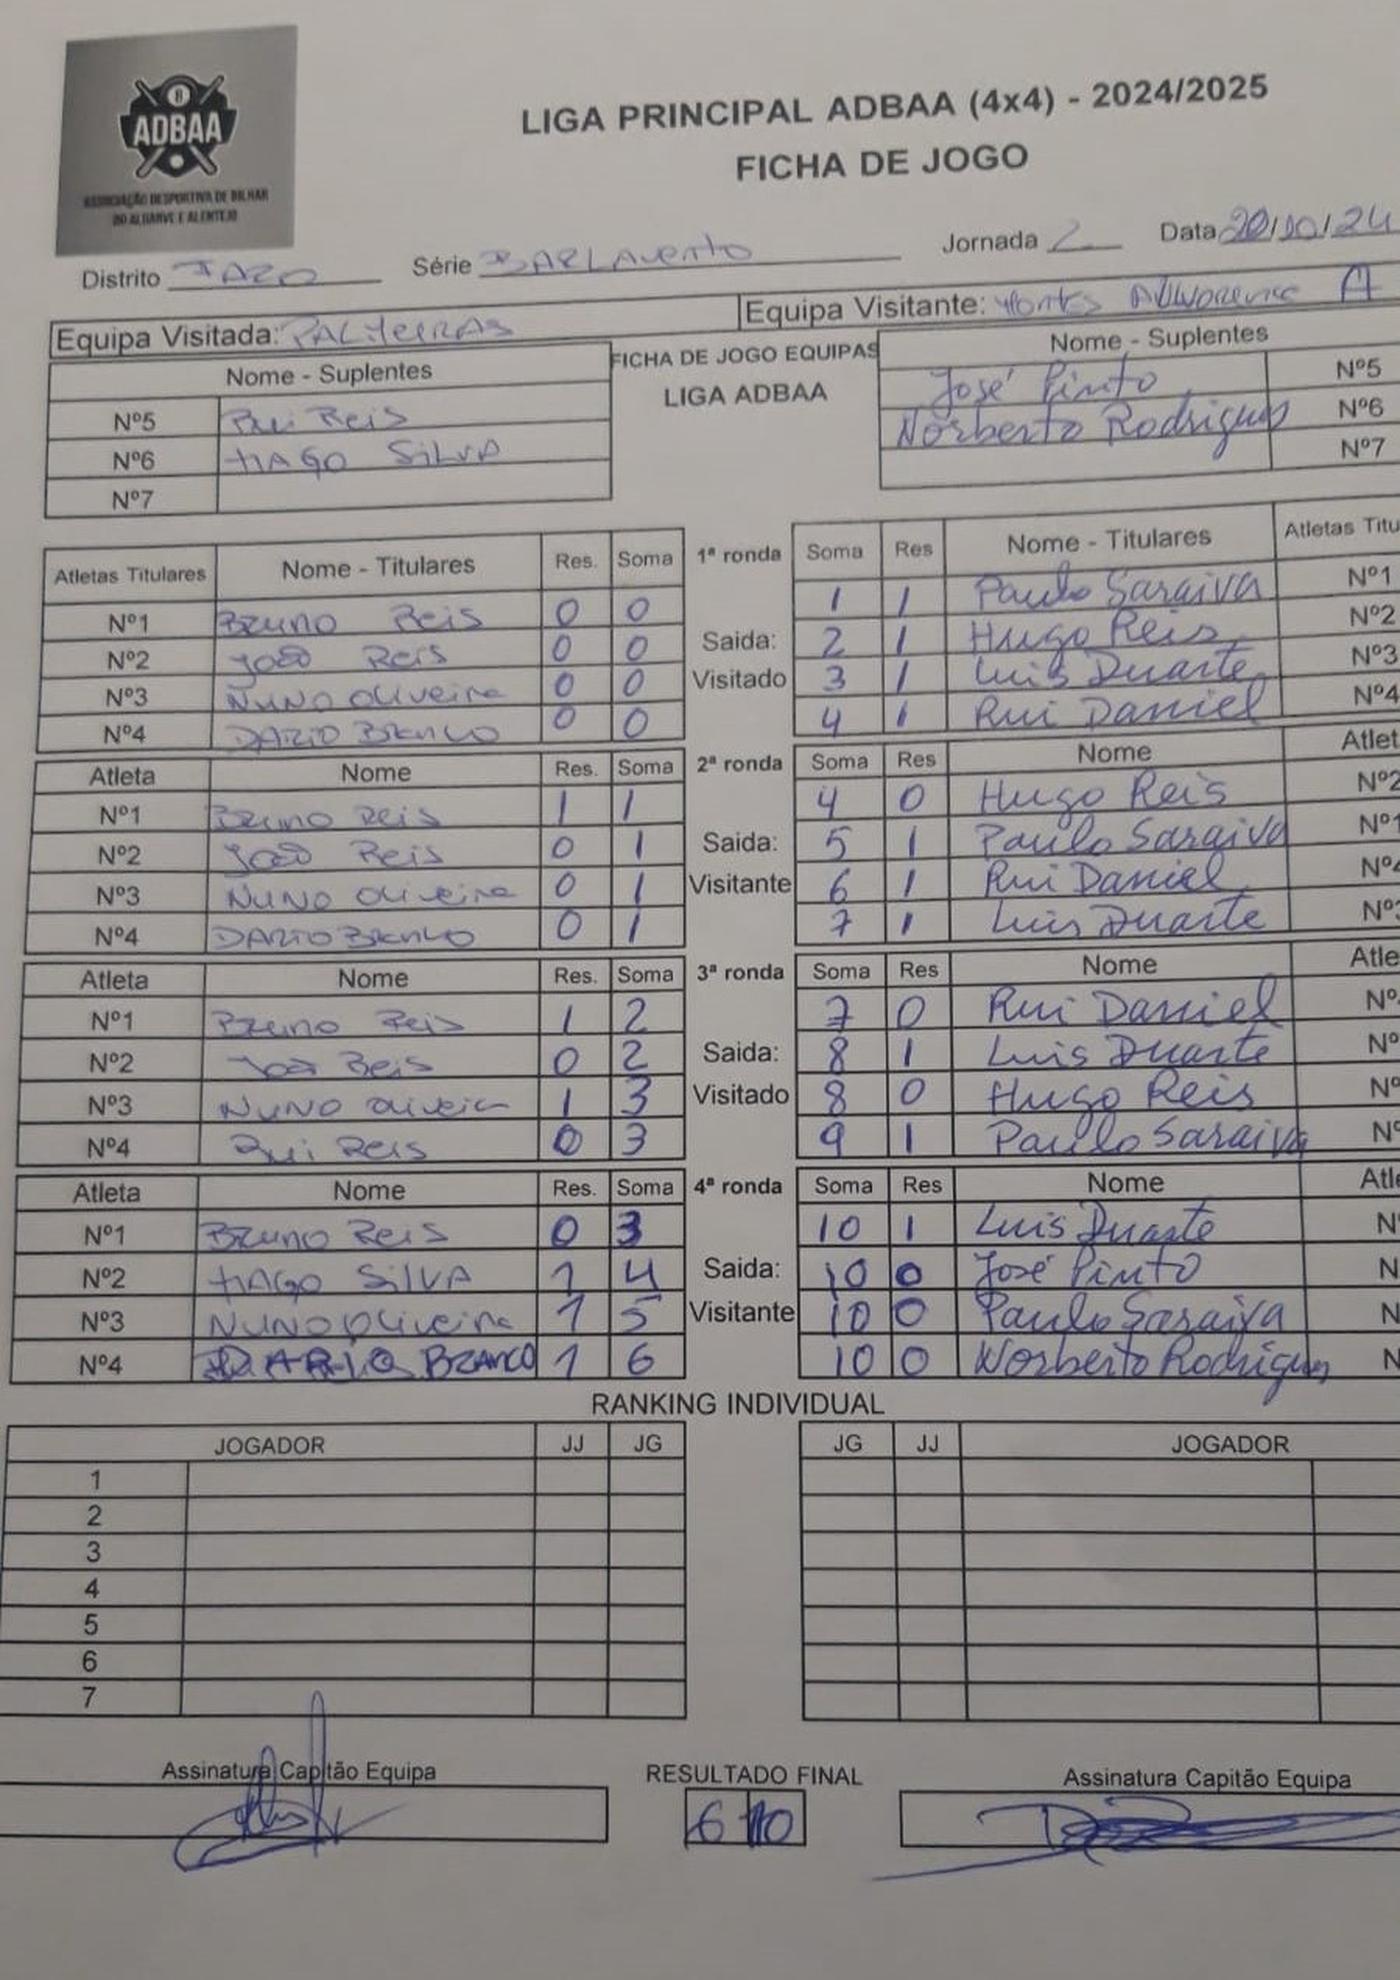 ADBAA
ASSOCIAÇÃO DESPORTIVA DE BILHAR
DO ALGARVE E ALENTEJO
LIGA PRINCIPAL ADBAA (4x4) - 2024/2025
FICHA DE JOGO
Distrito Série BARLAvento Jornada 2 Data 20/10/24
Equipa Visitada: PALMEIRAS Equipa Visitante: Montes Alvorense A
Nome - Suplentes FICHA DE JOGO EQUIPAS Nome - Suplentes
LIGA ADBAA
Nº5 Rui Reis José Pinto Nº5
Nº6 tiAGO SiLVA Norberto Rodrigues Nº6
Nº7 Nº7
Atletas Titulares Nome - Titulares Res. Soma 1ª ronda Soma Res Nome - Titulares Atletas Titu
Nº1 Bruno Reis 0 0 1 1 Paulo Saraiva Nº1
Nº2 João Reis 0 0 Saida: 2 1 Hugo Reis Nº2
Nº3 NUNO Oliveira 0 0 Visitado 3 1 Luis Duarte Nº3
Nº4 DARIO BRANCO 0 0 4 1 Rui Daniel Nº4
Atleta Nome Res. Soma 2ª ronda Soma Res Nome Atlet
Nº1 Bruno Reis 1 1 4 0 Hugo Reis Nº2
Nº2 João Reis 0 1 Saida: 5 1 Paulo Saraiva Nº1
Nº3 NUNO Oliveira 0 1 Visitante 6 1 Rui Daniel Nº4
Nº4 DARIO BRANCO 0 1 7 1 Luis Duarte Nº3
Atleta Nome Res. Soma 3ª ronda Soma Res Nome Atle
Nº1 Bruno Reis 1 2 7 0 Rui Daniel Nº
Nº2 João Reis 0 2 Saida: 8 1 Luis Duarte Nº
Nº3 NUNO Oliveira 1 3 Visitado 8 0 Hugo Reis Nº
Nº4 Rui Reis 0 3 9 1 Paulo Saraiva Nº
Atleta Nome Res. Soma 4ª ronda Soma Res Nome Atle
Nº1 Bruno Reis 0 3 10 1 Luis Duarte Nº
Nº2 tiAGO SiLVA 1 4 Saida: 10 0 José Pinto N
Nº3 NUNO Oliveira 1 5 Visitante 10 0 Paulo Saraiva N
Nº4 DARIO BRANCO 1 6 10 0 Norberto Rodrigues N
RANKING INDIVIDUAL
JOGADOR JJ JG JG JJ JOGADOR
1
2
3
4
5
6
7
Assinatura Capitão Equipa RESULTADO FINAL Assinatura Capitão Equipa
6 10